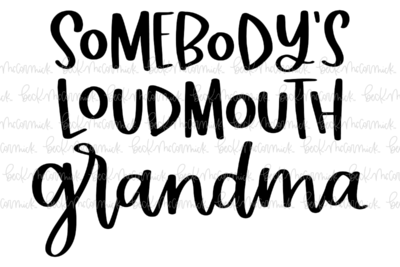 SOMEBODY'S
LOUDMOUTH
grandma